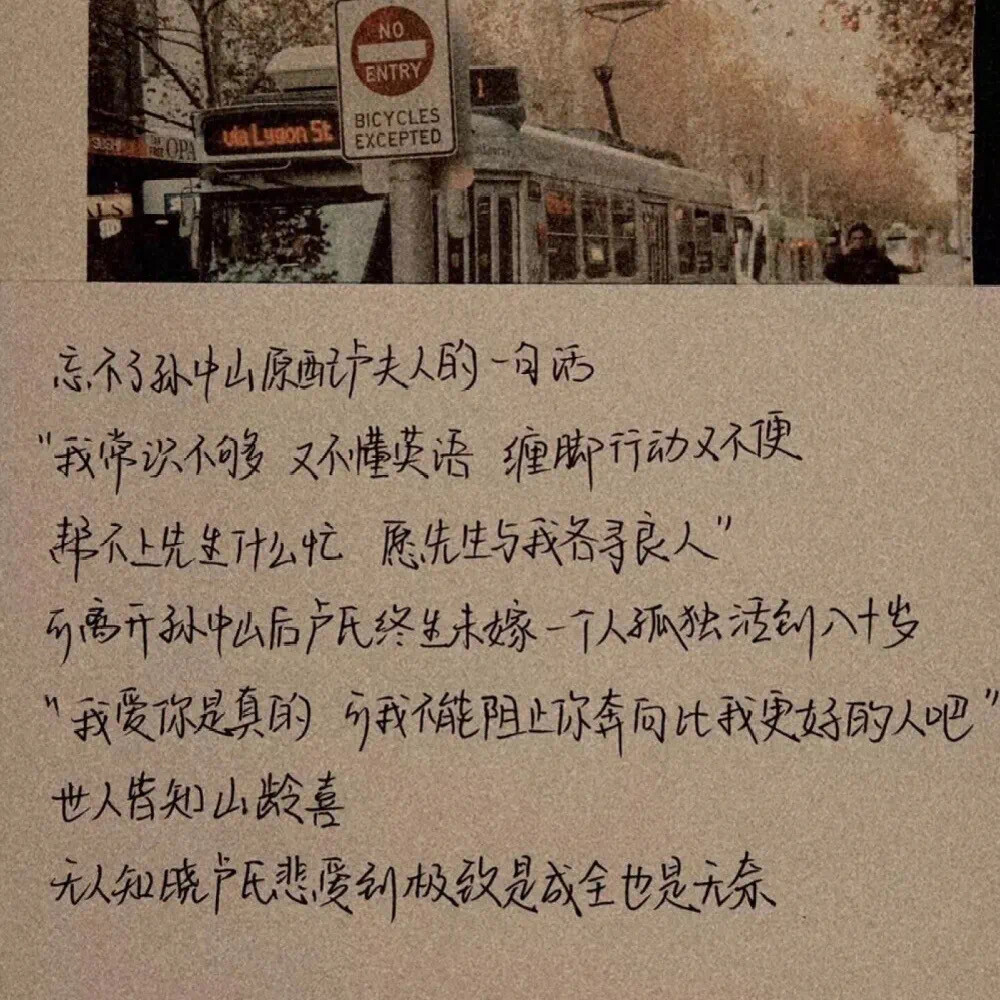 NO
ENTRY
BICYCLES
EXCEPTED
via Lygon St
1
SUSHI
OPA
忘不了孙中山原配卢夫人的一句话
"我常识不够 又不懂英语 缠脚行动又不便
帮不上先生什么忙 愿先生与我各寻良人"
可离开孙中山后卢氏终生未嫁一个人孤独活到八十岁
"我爱你是真的 可我不能阻止你奔向比我更好的人吧"
世人皆知山龄喜
无人知晓卢氏悲爱到极致是成全也是无奈